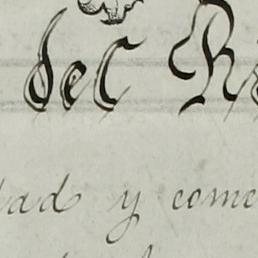 del R
dad y come